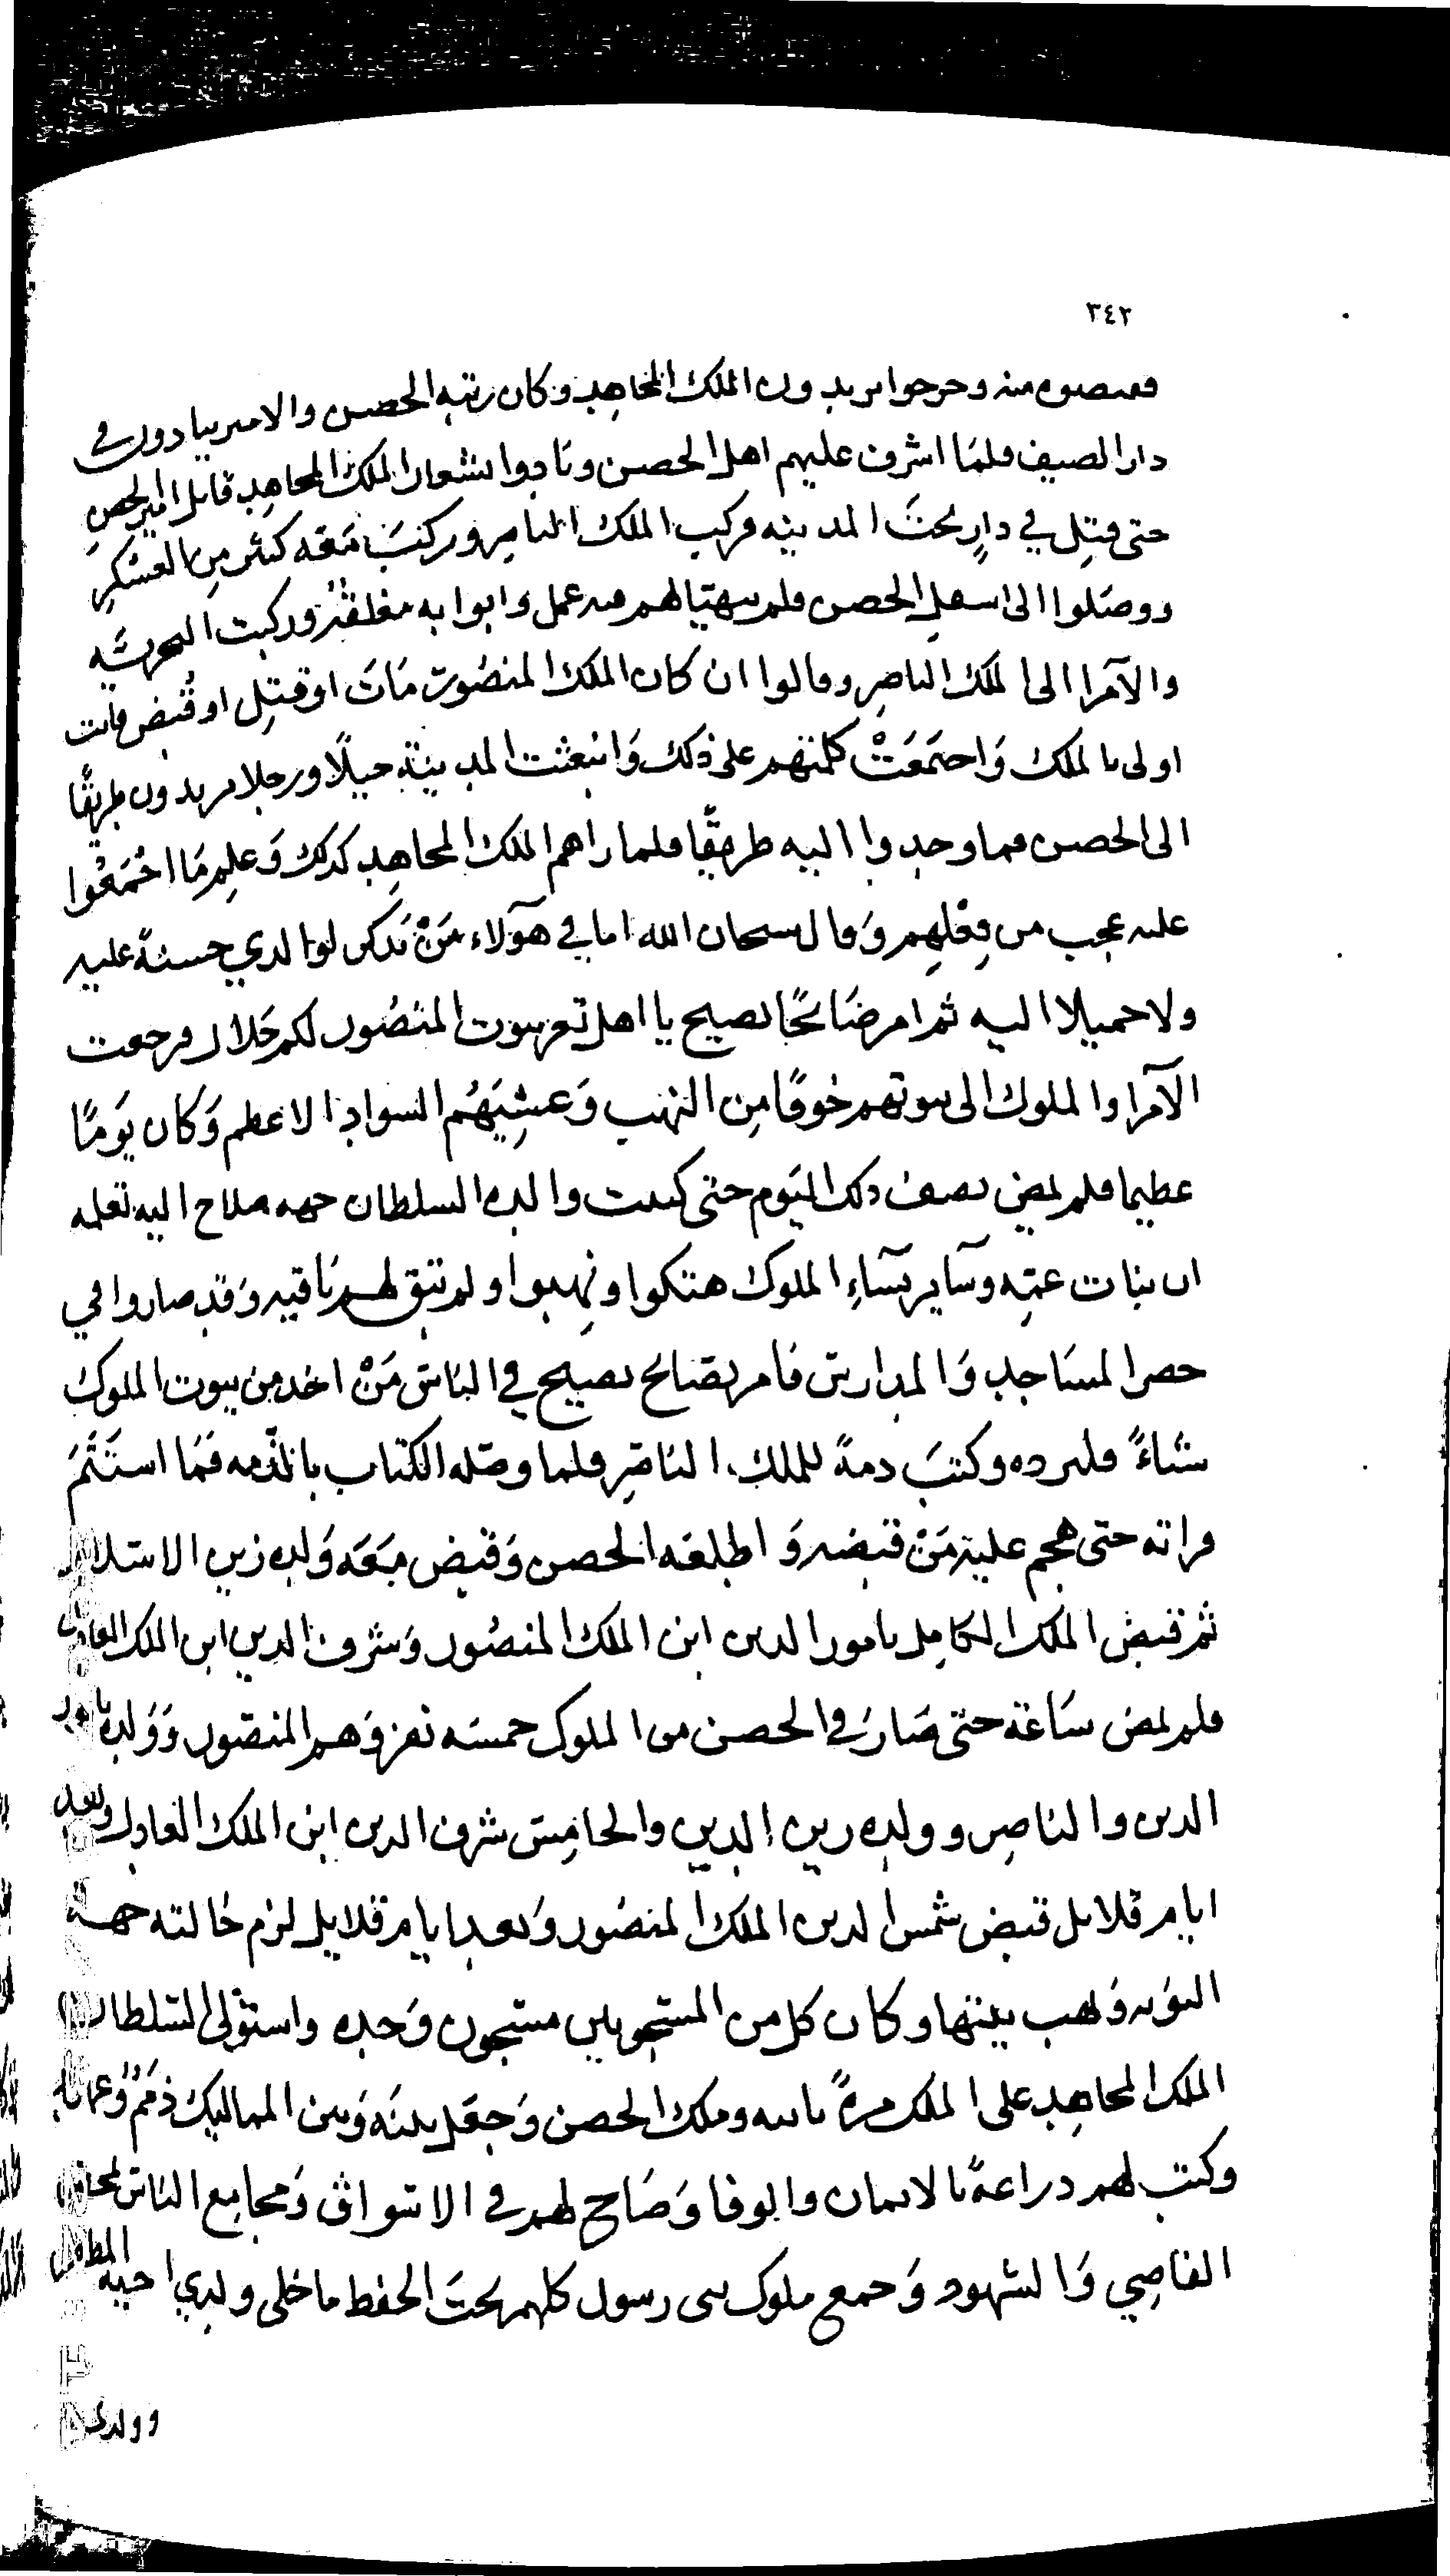 ٣٤٢
فقبضوه منه وخرجوا يريدون الملك المجاهد وكان رتبه الحصن والامير بيادور في
دار الضيف فلما اشرف عليهم اهل الحصن ونادوا بشعار الملك المجاهد قاتل امير الحصن
حتى قتل في دار تحت المدينه وركب الملك الناصر وركب معه كثير من العسكر
ووصلوا الى اسفل الحصن فلم يتهيا لهم فيه عمل وابوابه مغلقة وركبت البحريه
والآمرا الى الملك الناصر وقالوا ان كان الملك المنصور مات او قتل او قبض فانت
اولى بالملك واجتمعت كلمتهم على ذلك وانبعثت المدينة خيلا ورجلا يريدون طريقا
الى الحصن فما وجدوا اليه طريقا فلما راهم الملك المجاهد كذلك وعلم ما اجمعوا
عليه عجب من فعلهم وقال سبحان الله اما في هولاء من يذكر لوالدي حسنة عليه
ولا جميلا اليه ثم امر صائحا يصيح يا اهل تعز بيوت المنصور لكم حلال فرجعت
الآمرا والملوك الى بيوتهم خوفا من النهب وغشيهم السواد الاعظم وكان يوما
عظيما فلم يمض نصف ذلك اليوم حتى كتبت والده السلطان جهه صلاح اليه تعلمه
ان بنات عمه وساير نساء الملوك هتكوا ونهبوا ولم تبق لهم باقيه وقد صاروا في
حصر المساجد والمدارس فامر بصائح يصيح في الناس من اخذ من بيوت الملوك
شياء فليرده وكتب ذمة للملك الناصر فلما وصله الكتاب بالذمه فما استتم
قراته حتى هجم عليه من قبضه واطلعه الحصن وقبض معه ولده زين الاسلام
ثم قبض الملك الكامل نامور الدين ابن الملك المنصور وشرف الدين ابن الملك العادل
فلم يمض ساعة حتى صار في الحصن من الملوك خمسه نفر وهم المنصور وولده نامور
الدين والناصر وولده زين الدين والخامس شرف الدين ابن الملك العادل وبعد
ايام قلايل قبض شمس الدين الملك المنصور وبعد ايام قلايل لزم خالته جهة
ونهب بيتها وكان كل من المسجونين مسجون وحده واستولى السلطان
الملك المجاهد على الملك مرة ثانيه وملك الحصن وجعل بينه وبين المماليك ذمم
وكتب لهم ذراعة بالايمان والوفا وصاح لهم في الاسواق ومجامع الناس بمحضر
القاضي والشهود وجمع ملوك بني رسول كلهم تحت الحفظ ما خلى ولدي اخيه المظفر
وولدى